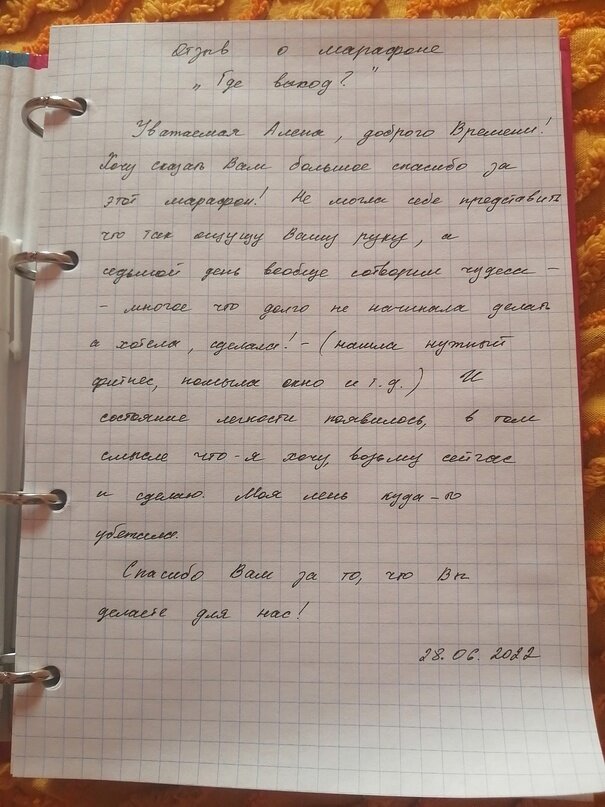 Отзыв о марафоне
„Где выход?"
Уважаемая Алена, доброго Времени!
Хочу сказать Вам большое спасибо за
этот марафон! Не могла себе представить
что так ощущу Вашу руку, а
седьмой день вообще сотворил чудеса -
- многое что долго не начинала делать
а хотела, сделала! - (нашла нужный
фитнес, помыла окно и т.д.) И
состояние легкости появилось, в том
смысле что-я хочу, возьму сейчас
и сделаю. Моя лень куда-то
убежала.
Спасибо Вам за то, что Вы
делаете для нас!
28.06.2022